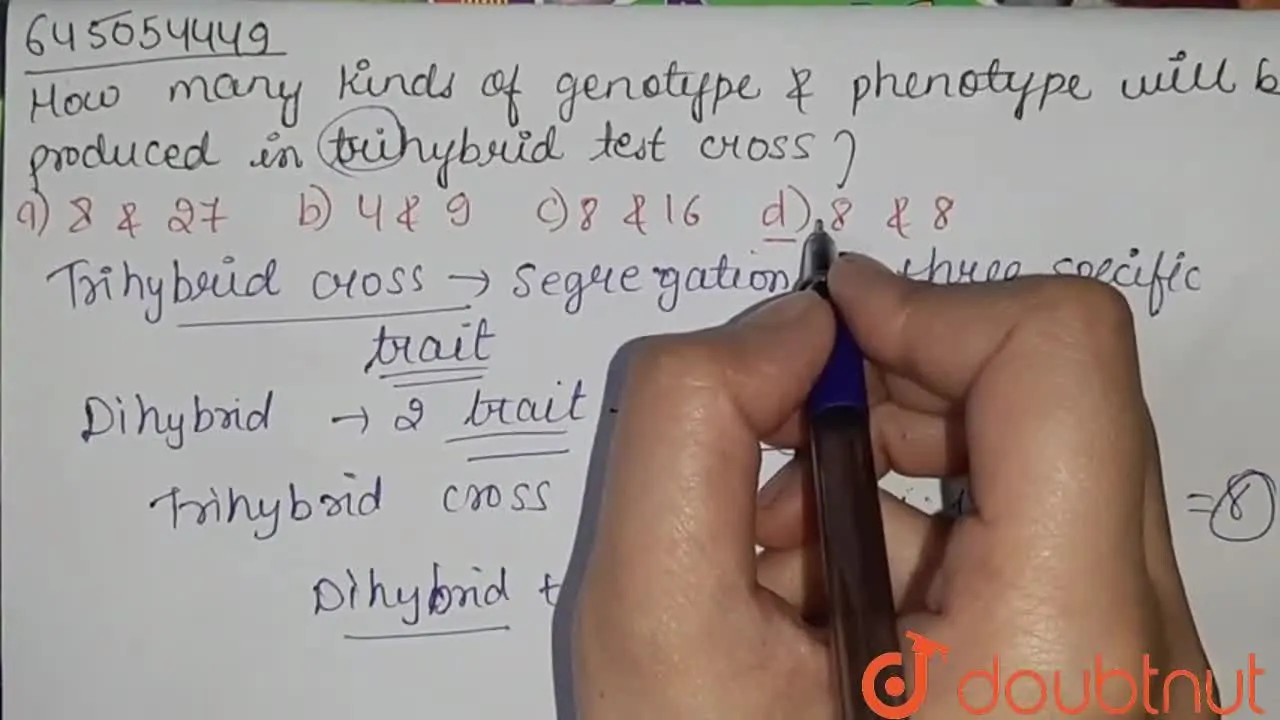 645054449
How many kinds of genotype & phenotype will b
produced in trihybrid test cross?
a) 8 & 27 b) 4 & 9 c) 8 & 16 d) 8 & 8
Trihybrid cross → segregation three specific
trait
Dihybrid → 2 trait
Trihybrid cross = 8
Dihybrid t
doubtnut